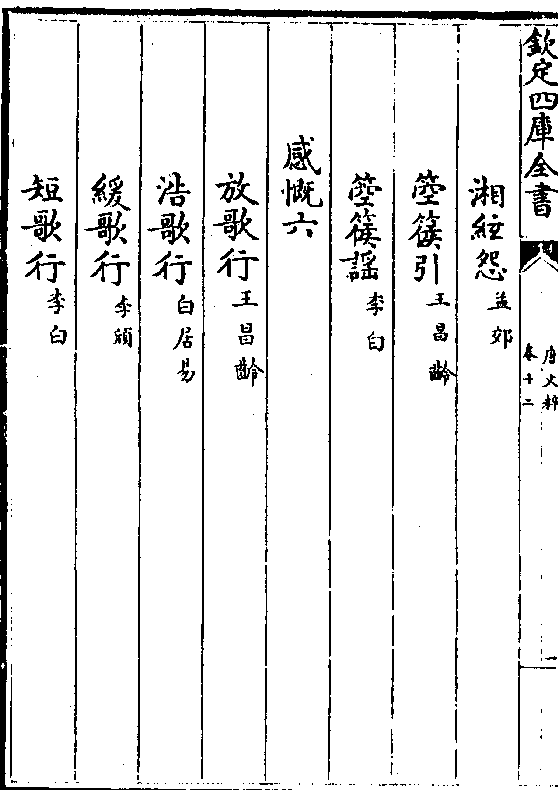 欽定四庫全書
唐文粹
卷十二
湘絃怨 孟郊
箜篌引 王昌齡
箜篌謡 李白
感慨六
放歌行 王昌齡
浩歌行 白居易
緩歌行 李頎
短歌行 李白